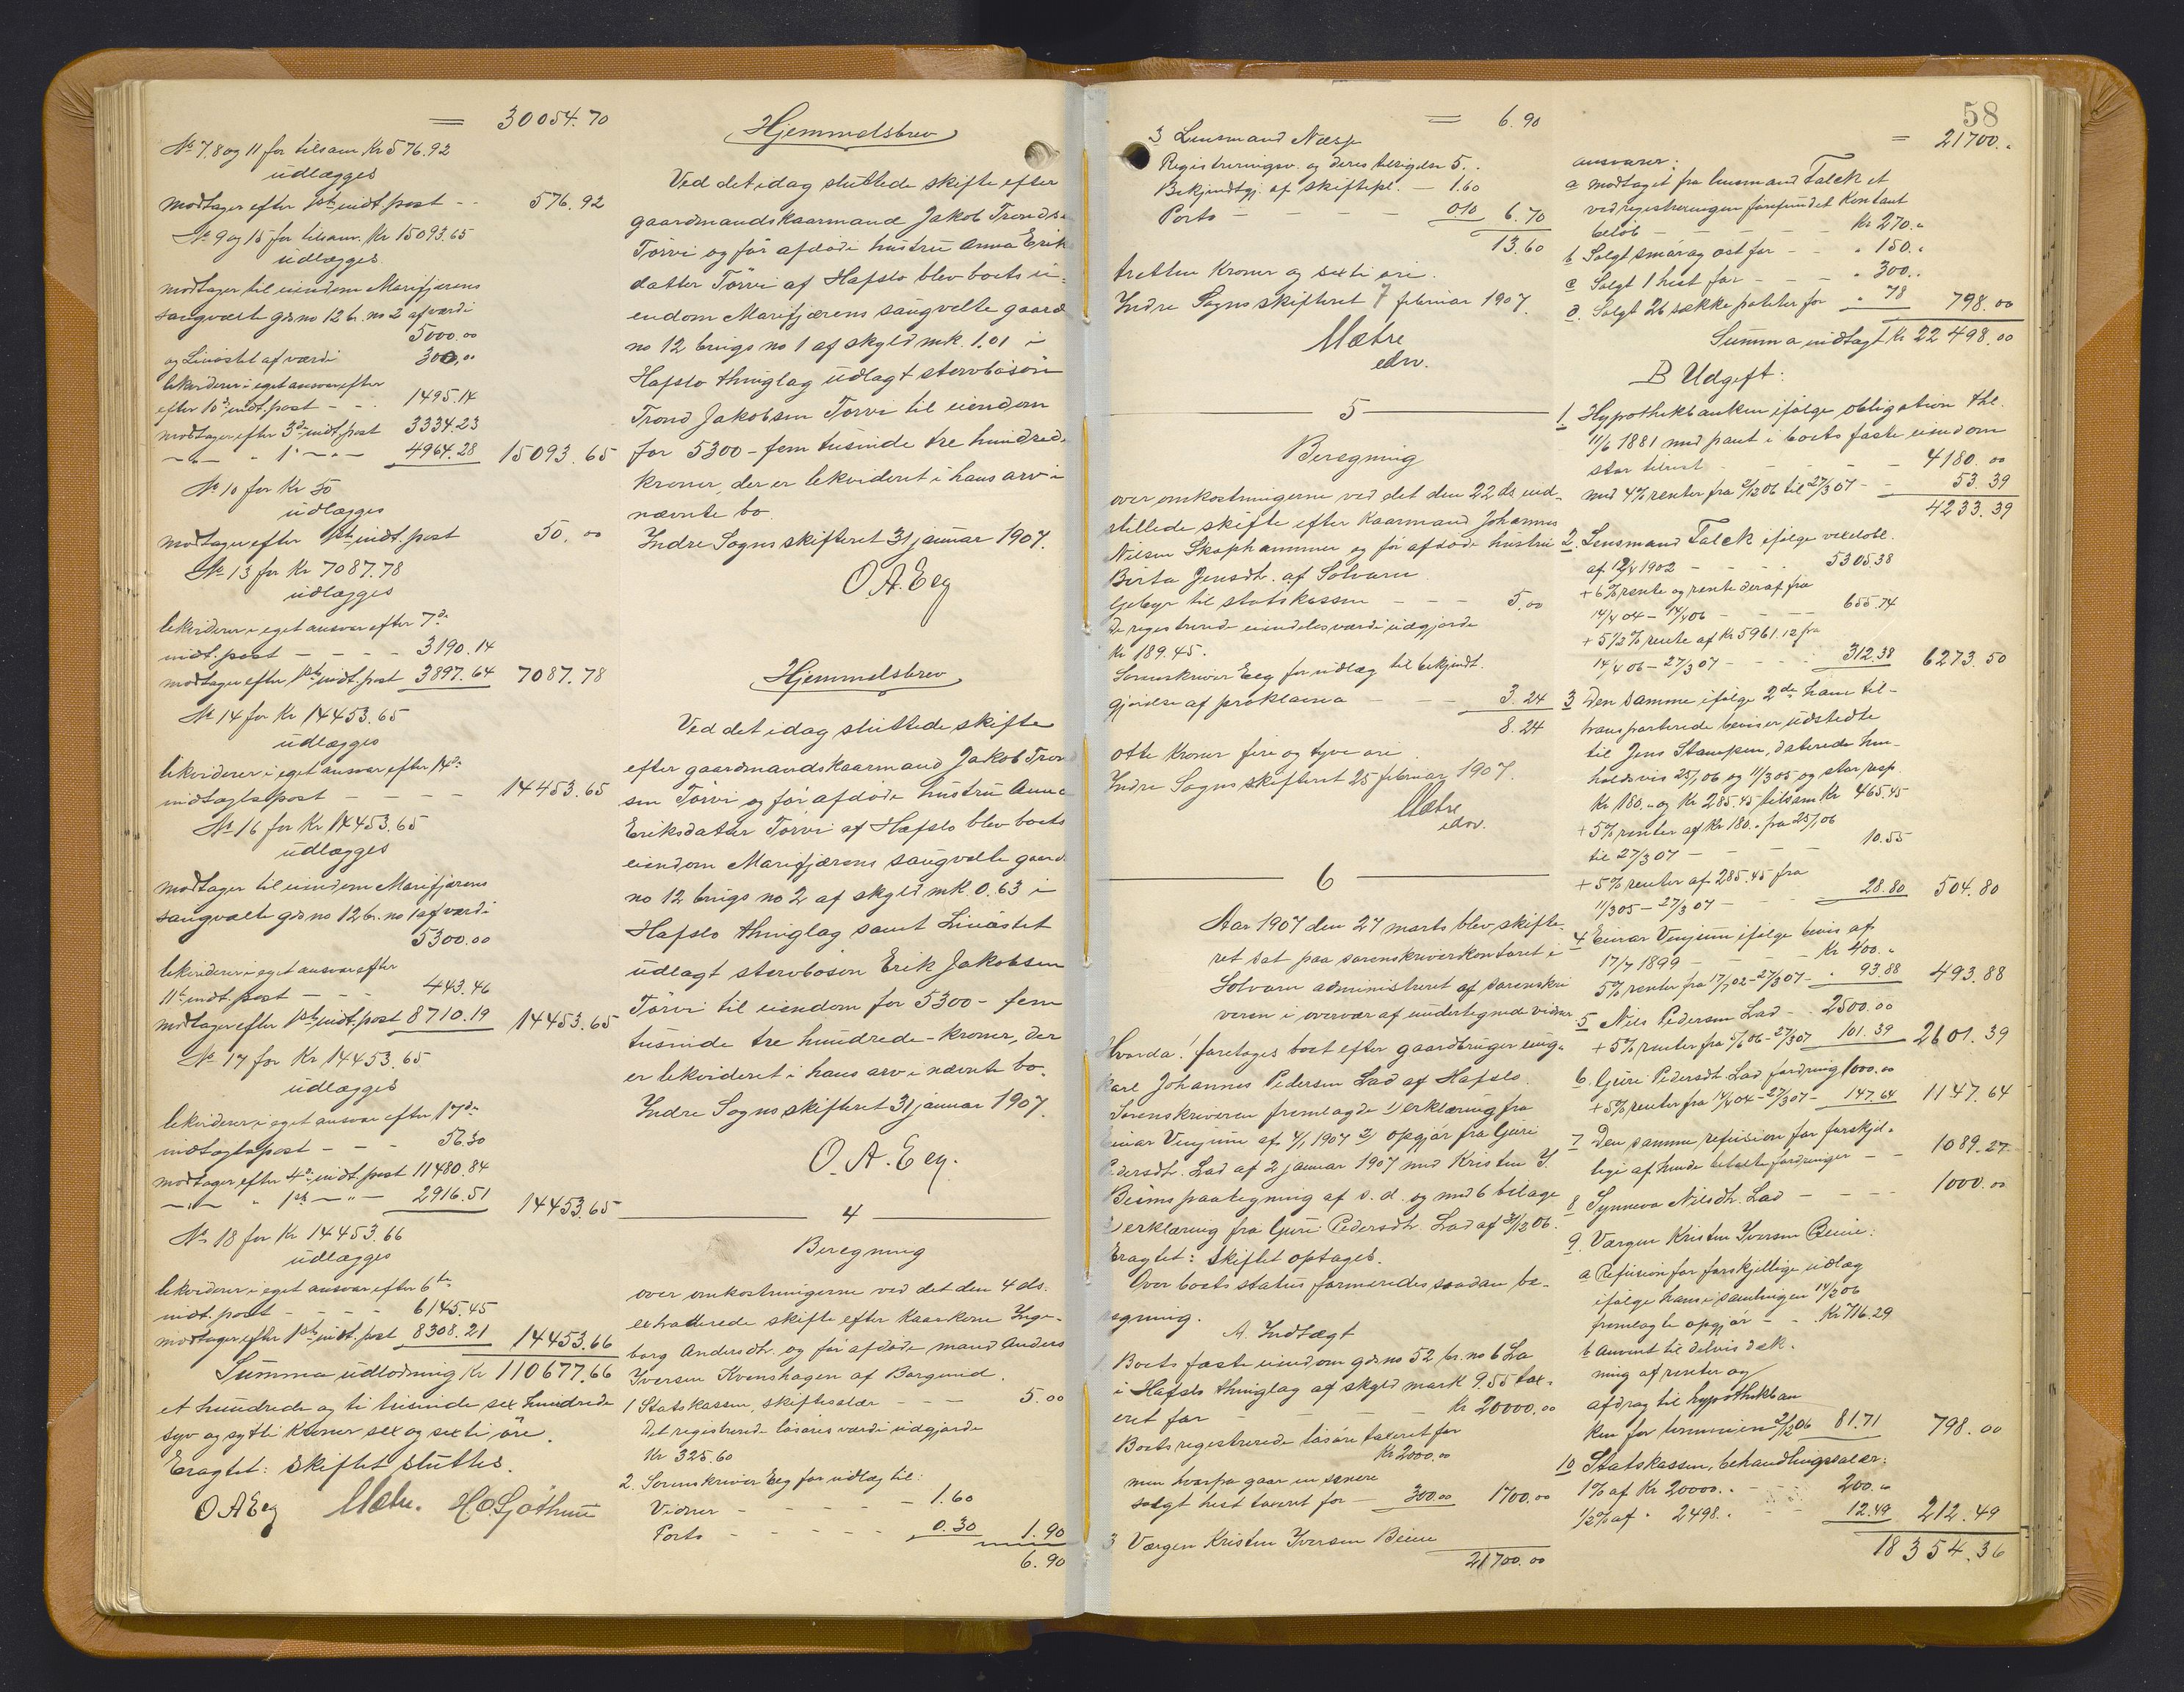 = 30054.70
No 7, 8 og 11 for tilsam. Kr 576.92
udlægges
modtager efter 1ste indt. post - - 576.92
No 9 og 15 for tilsam. Kr 15093.65
udlægges
modtager til eiendom Marifjærens
saugvolte gds no 12 br. no 2 af værdi
5000.00
og Linåstet af værdi 300,00
likviderer i eget ansvar efter
efter 10de indt. post - - 1495.14
modtager efter 3de indt. post 3334.23
- " - " 1 - " - 4964.28 15093.65
No 10 for Kr 50
udlægges
modtager efter 1ste indt. post 50.00
No 13 for Kr 7087.78
udlægges
likviderer i eget ansvar efter 7de
indt. post - - - - 3190.14
modtager efter 1ste indt. post 3897.64 7087.78
No 14 for Kr 14453.65
udlægges
likviderer i eget ansvar efter 14de
indtagtspost - - - - 14453.65
No 16 for Kr 14453.65
udlægges
modtager til eiendom Marifjærens
saugvolte gds no 12 br. no 1 af værdi
5300.00
likviderer i eget ansvar efter
11te indt. post - - - 443.46
modtager efter 1ste indt. post 8710.19 14453.65
No 17 for Kr 14453.65
udlægges
likviderer i eget ansvar efter 17de
indtagtspost - - - 56.30
modtager efter 4de indt. post 11480.84
- " - " 1ste - " - 2916.51 14453.65
No 18 for Kr 14453.66
udlægges
likviderer i eget ansvar efter 6te
indt. post - - - - 6145.45
modtager efter 1ste indt. post 8308.21 14453.66
Summa udlodning Kr 110677.66
et hundrede og ti tusinde sex hundrede
syv og sytti Kroner sex og sexti øre.
Eragtet: Skiftet sluttes.
O A Eeg Mætre. H. O. Gjøthun
Hjemmelsbrev
Ved det idag sluttede skifte efter
gaardmandskaarmand Jakob Tronds.
Torvi og før afdøde hustru Anna Erik
datter Torvi af Hafslo blev boets ei=
endom Marifjærens saugvolte gaard
no 12 brugs no 1 af skyld mk. 1.01 i
Hafslo thinglag udlagt stervbosøn
Trond Jakobsen Torvi til eiendom
for 5300 - fem tusinde tre hundred.
kroner, der er likvideret i hans arv i
nævnte bo.
Indre Sogns skifteret 31 januar 1907.
O. A. Eeg
Hjemmelsbrev
Ved det idag sluttede skifte
efter gaardmandskaarmand Jakob Trond
sen Torvi og før afdøde hustru Anna
Eriksdatter Torvi af Hafslo blev boets
eiendom Marifjærens saugvolte gaard
no 12 brugs no 2 af skyld mk. 0.63 i
Hafslo thinglag samt Linåstet
udlagt stervbosøn Erik Jakobsen
Torvi til eiendom for 5300 - fem
tusinde tre hundrede - kroner, der
er likvideret i hans arv i nævnte bo.
Indre Sogns skifteret 31 januar 1907.
O. A. Eeg.
4
Beregning
over omkostningerne ved det den 4 ds.
extraderede skifte efter Kaarkone Inge-
borg Andersdtr. og før afdøde mand Anders
Iversen Kvenshagen af Borgund.
1 Statskassen, skiftesalær - - - 5.00
Det registrerede løsøres værdi udgjorde
Kr 325.60
2. Sorenskriver Eeg for udlæg til:
Vidner - - - - - 1.60
Porto - - - - - 0.30 1.90
6.90
= 6.90
3 Lensmand Næsse
Registreringsv. og deres tilsigelse 5..
Bekjendtgj. af skiftepl. - 1.60
Porto - - - - 0.10 6.70
13.60
tretten Kroner og sexti øre.
Indre Sogns skifteret 7 februar 1907.
Mætre
edv.
5
Beregning
over omkostningerne ved det den 22 ds. ind-
stillede skifte efter Kaarmand Johannes
Nilsen Skaphammer og før afdøde hustru
Birta Jensdtr. af Solvorn.
Gebyr til statskassen - - - 5.00
De registrerede eiendeles værdi udgjorde
Kr 189.45.
Sorenskriver Eeg for udlæg til bekjendt-
gjørelse af proklama - - - 3.24
8.24
otte Kroner fire og tyve øre
Indre Sogns skifteret 25 februar 1907.
Mætre
edv.
6
Aar 1907 den 27 marts blev skifte-
ret sat paa sorenskriverkontoret i
Solvorn administreret af sorenskri
veren i overvær af undertegnede vidner
Hvorda! foretoges boet efter gaardbruger ung-
karl Johannes Pedersen Lad af Hafslo.
Sorenskriveren fremlagde 1) erklæring fra
Einar Vinjum af 4/1 1907 2) opgjør fra Guri
Pedersdtr. Lad af 2 januar 1907 med Kristen I.
Beims paategning af s. d. og med 6 bilage
3) erklæring fra Guri Pedersdtr. Lad af 31/3 06.
Eragtet: Skiftet optages.
Over boets status formeredes saadan be-
regning.
A. Indtægt
1. Boets faste eiendom gds no 52 br. no 6 La
i Hafslo thinglag af skyld mark 9.55 tax-
eret for - - - Kr 20000.00
2 Boets registrerede løsøre taxeret for
Kr 2000.00
men hvorfra gaar en senere
solgt hest taxeret for - 300.00 1700.00
3 Værgen Kristen Iversen Beim
21700.00
58
= 21700.
ansvarer:
a modtaget fra lensmand Falck et
ved registreringen forefundet Kontant
beløb - - - - Kr 270.
b Solgt smør og ost for - - " 150.
c Solgt 1 hest for - - - " 300..
d. Solgt 26 sække poteter for " 78 798.00
Summa indtægt Kr 22498.00
B Udgift:
1. Hypothekbanken ifølge obligation thl.
11/6 1881 med pant i boets faste eiendom
stor tilrest - - - - 4180.00
med 4% renter fra 2/12 06 til 27/3 07 - - 53.39
4233.39
2. Lensmand Falck ifølge vexelobl.
af 12/4 1902 - - - 5305.38
+ 6% rente og rente deraf fra
14/4 04 - 14/4 06 - - - 655.74
+ 5 1/2 % rente af Kr 5961.12 fra
14/4 06 - 27/3 07 - - - 312.38 6273.50
3 Den samme ifølge 2de ham til-
transporterede beviser udstedte
til Jens Stampen, daterede hen-
holdsvis 25/1 06 og 11/3 05 og stor resp.
Kr 180.- og Kr 285.45 tilsam Kr 465.45
+ 5% renter af Kr 180. fra 25/1 06
til 27/3 07 - - - 10.55
+ 5% renter af 285.45 fra
11/3 05 - 27/3 07 - - - 28.80 504.80
4 Einar Vinjum ifølge bevis af
17/7 1899 - - - Kr 400.
5% renter fra 17/7 02 - 27/3 07 - " 93.88 493.88
5 Nils Pedersen Lad - - 2500.00
+ 5% renter fra 5/6 06 - 27/3 07 101.39 2601.39
6. Guri Pedersdtr. Lad fordring 1000.00
+ 5% renter fra 14/4 04 - 27/3 07 - 147.64 1147.64
7 Den samme refusion for forskjel-
lige af hende betalte fordringer - - 1089.27
8 Synneva Nilsdtr. Lad - - - 1000.00
9. Værgen Kristen Iversen Beim:
a Refusion for forskjellige udlæg
ifølge hans i samlingen 14/2 06
fremlagte opgjør - - Kr 716.29
b anvent til delvis dæk-
ning af renter og
afdrag til hypothekban
ken for terminen 2/12 06 81.71 798.00
10 Statskassen, behandlingssalær:
1% af Kr 20000.. - 200.
1/2 % af " 2498.. - - 12.49 212.49
18354.36